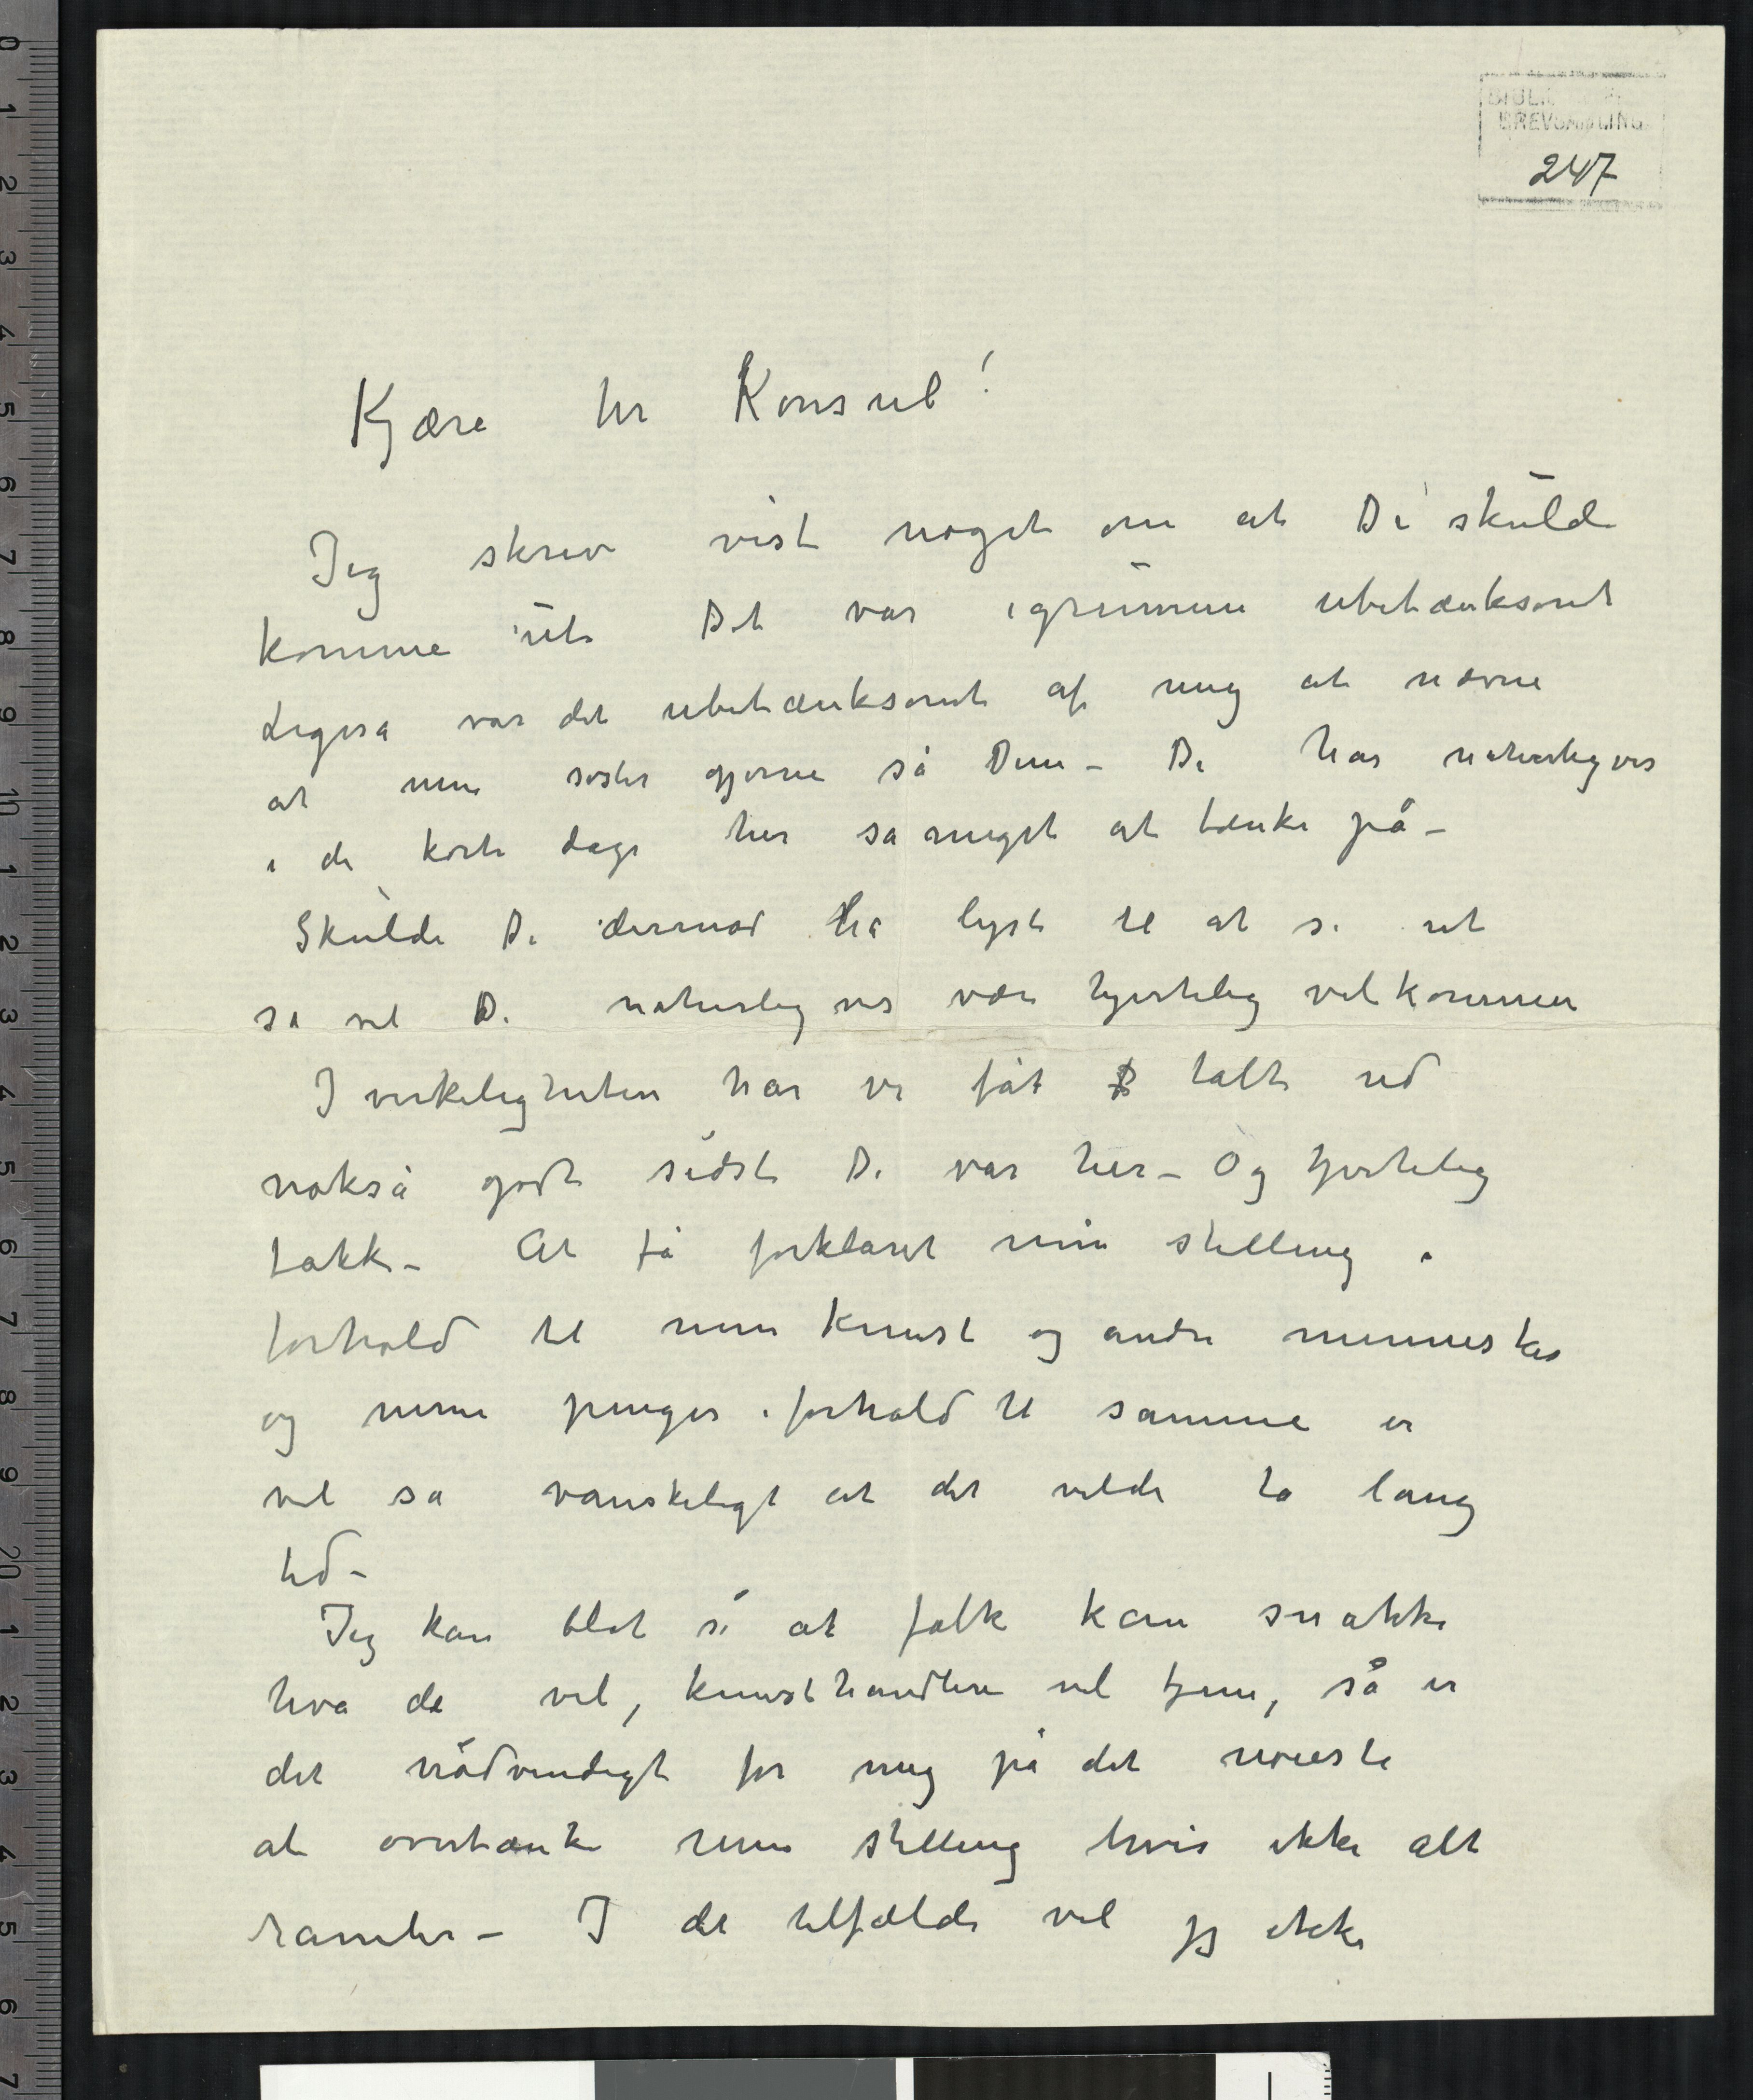 BREVSAMLING
247
Kjære hr Konsul!
Jeg skrev vist noget om at De skulde
komme ut. Det var igrunnen ubetænksomt
Ligeså var det ubetænksomt af mig at nævne
at min søster gjerne så Dem – De har naturligvis
i de korte dage her så meget at tænke på –
Skulde De derimod ha lyst til at se ut
så vil De naturligvis være hjertelig velkommen
I virkeligheten har vi fåt talt ud
nokså godt sidst De var her – Og hjertelig
takk – At få forklaret min stilling i
forhold til min kunst og andre mennesker
og mine penger i forhold til samme er
vel så vanskeligt at det vilde ta lang
tid –
Jeg kan blot si at folk kan snakke
hva de vil, kunsthandlere vil tjene, så er
det nødvendigt for mig på det nøieste
at overtænke min stilling hvis ikke alt
ramler – I det tilfælde vil jeg ikke